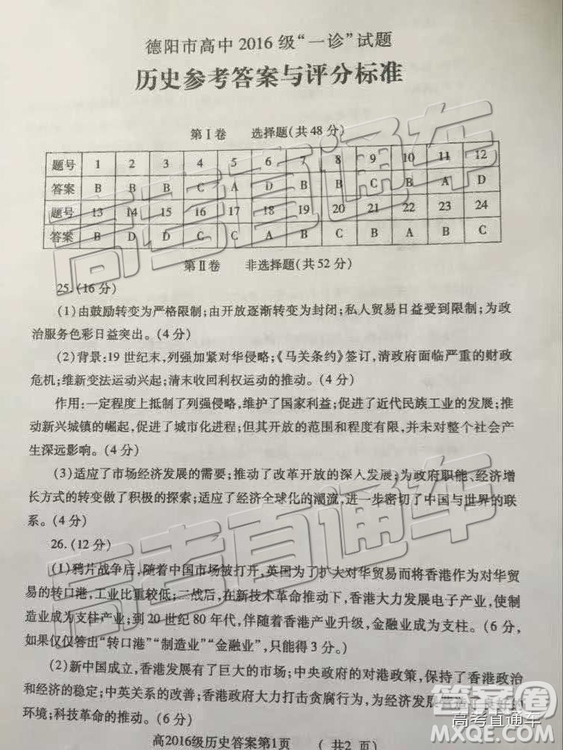 德阳市高中2016级“一诊”试题
历史参考答案与评分标准
第Ⅰ卷 选择题(共48分)
题号 1 2 3 4 5 6 7 8 9 10 11 12
答案 B B B C A D B B C B A D
题号 13 14 15 16 17 18 19 20 21 22 23 24
答案 B D D C D A C A C B C C
第Ⅱ卷 非选择题(共52分)
25.(16分)
(1)由鼓励转变为严格限制;由开放逐渐转变为封闭;私人贸易日益受到限制;为政
治服务色彩日益突出。(4分)
(2)背景:19世纪末,列强加紧对华侵略;《马关条约》签订,清政府面临严重的财政
危机;维新变法运动兴起;清末收回利权运动的推动。(4分)
作用:一定程度上抵制了列强侵略,维护了国家利益;促进了近代民族工业的发展;推
动新兴城镇的崛起,促进了城市化进程;但其开放的范围和程度有限,并未对整个社会产
生深远影响。(4分)
(3)适应了市场经济发展的需要;推动了改革开放的深入发展;为政府职能、经济增
长方式的转变做了积极的探索;适应了经济全球化的潮流,进一步密切了中国与世界的联
系。(4分)
26.(12分)
(1)鸦片战争后,随着中国市场被打开,英国为了扩大对华贸易而将香港作为对华贸
易的转口港,工业比重较低;二战后,在新技术革命推动下,香港大力发展电子产业,使制
造业成为支柱产业;到20世纪80年代,伴随着香港产业升级,金融业成为支柱。(6分,
如果仅仅答出“转口港”“制造业”“金融业”,只能得3分。)
(2)新中国成立,香港有了巨大的市场;中央政府的对港政策,保持了香港政治和经
济的稳定;中英关系的改善;香港政府大力打击贪腐行为,为经济发展
环境;科技革命的推动。(6分)
高2016级历史答案第1页 (共2页)
高考直通车
答案圈
高考直通车
高考直通车